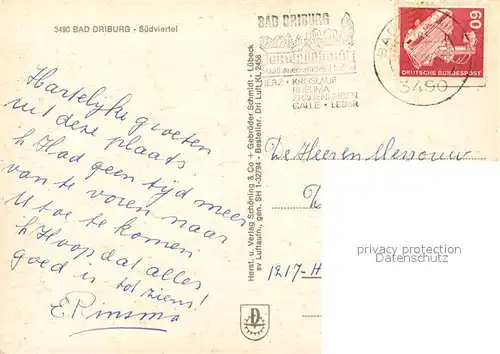 3490 BAD DRIBURG - Südviertel
Hartelijke groeten
uit deze plaats
h Had geen tijd meer
van te voren naar
U toe te komen
h Hoop dat alles
goed is tot ziens!
E Rinsma
Herst. u. Verlag Schöning & Co + Gebrüder Schmidt - Lübeck
sv Luftaufn., gen. SH 1-32794 - Bestellnr. Dri Luft KL 2458
BAD DRIBURG
HERZ · KREISLAUF
RHEUMA
GALLE · LEBER
3490
60
DEUTSCHE BUNDESPOST
De Heer en Mevrouw
1217-H
privacy protection
Datenschutz
D